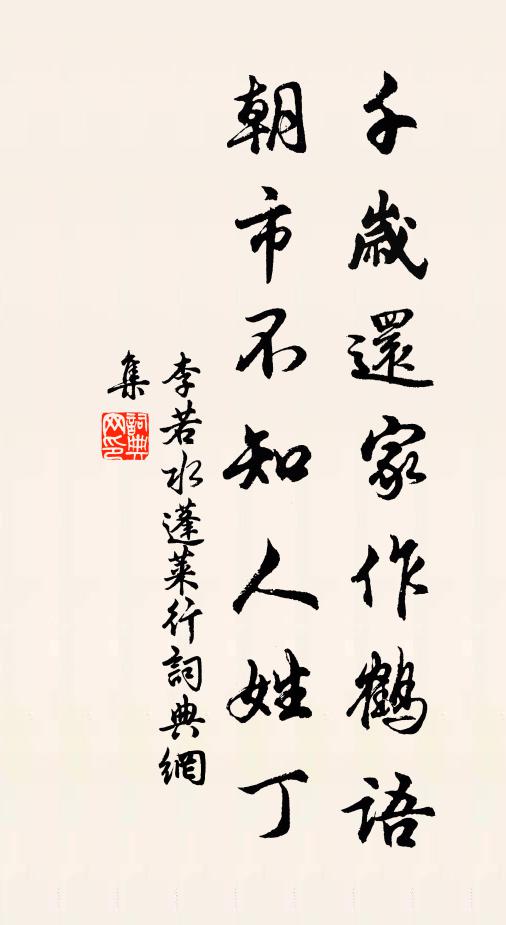 千歲還家作鶴語
朝市不知人姓丁
李若水蓬萊行詞典網
集
詞典網印